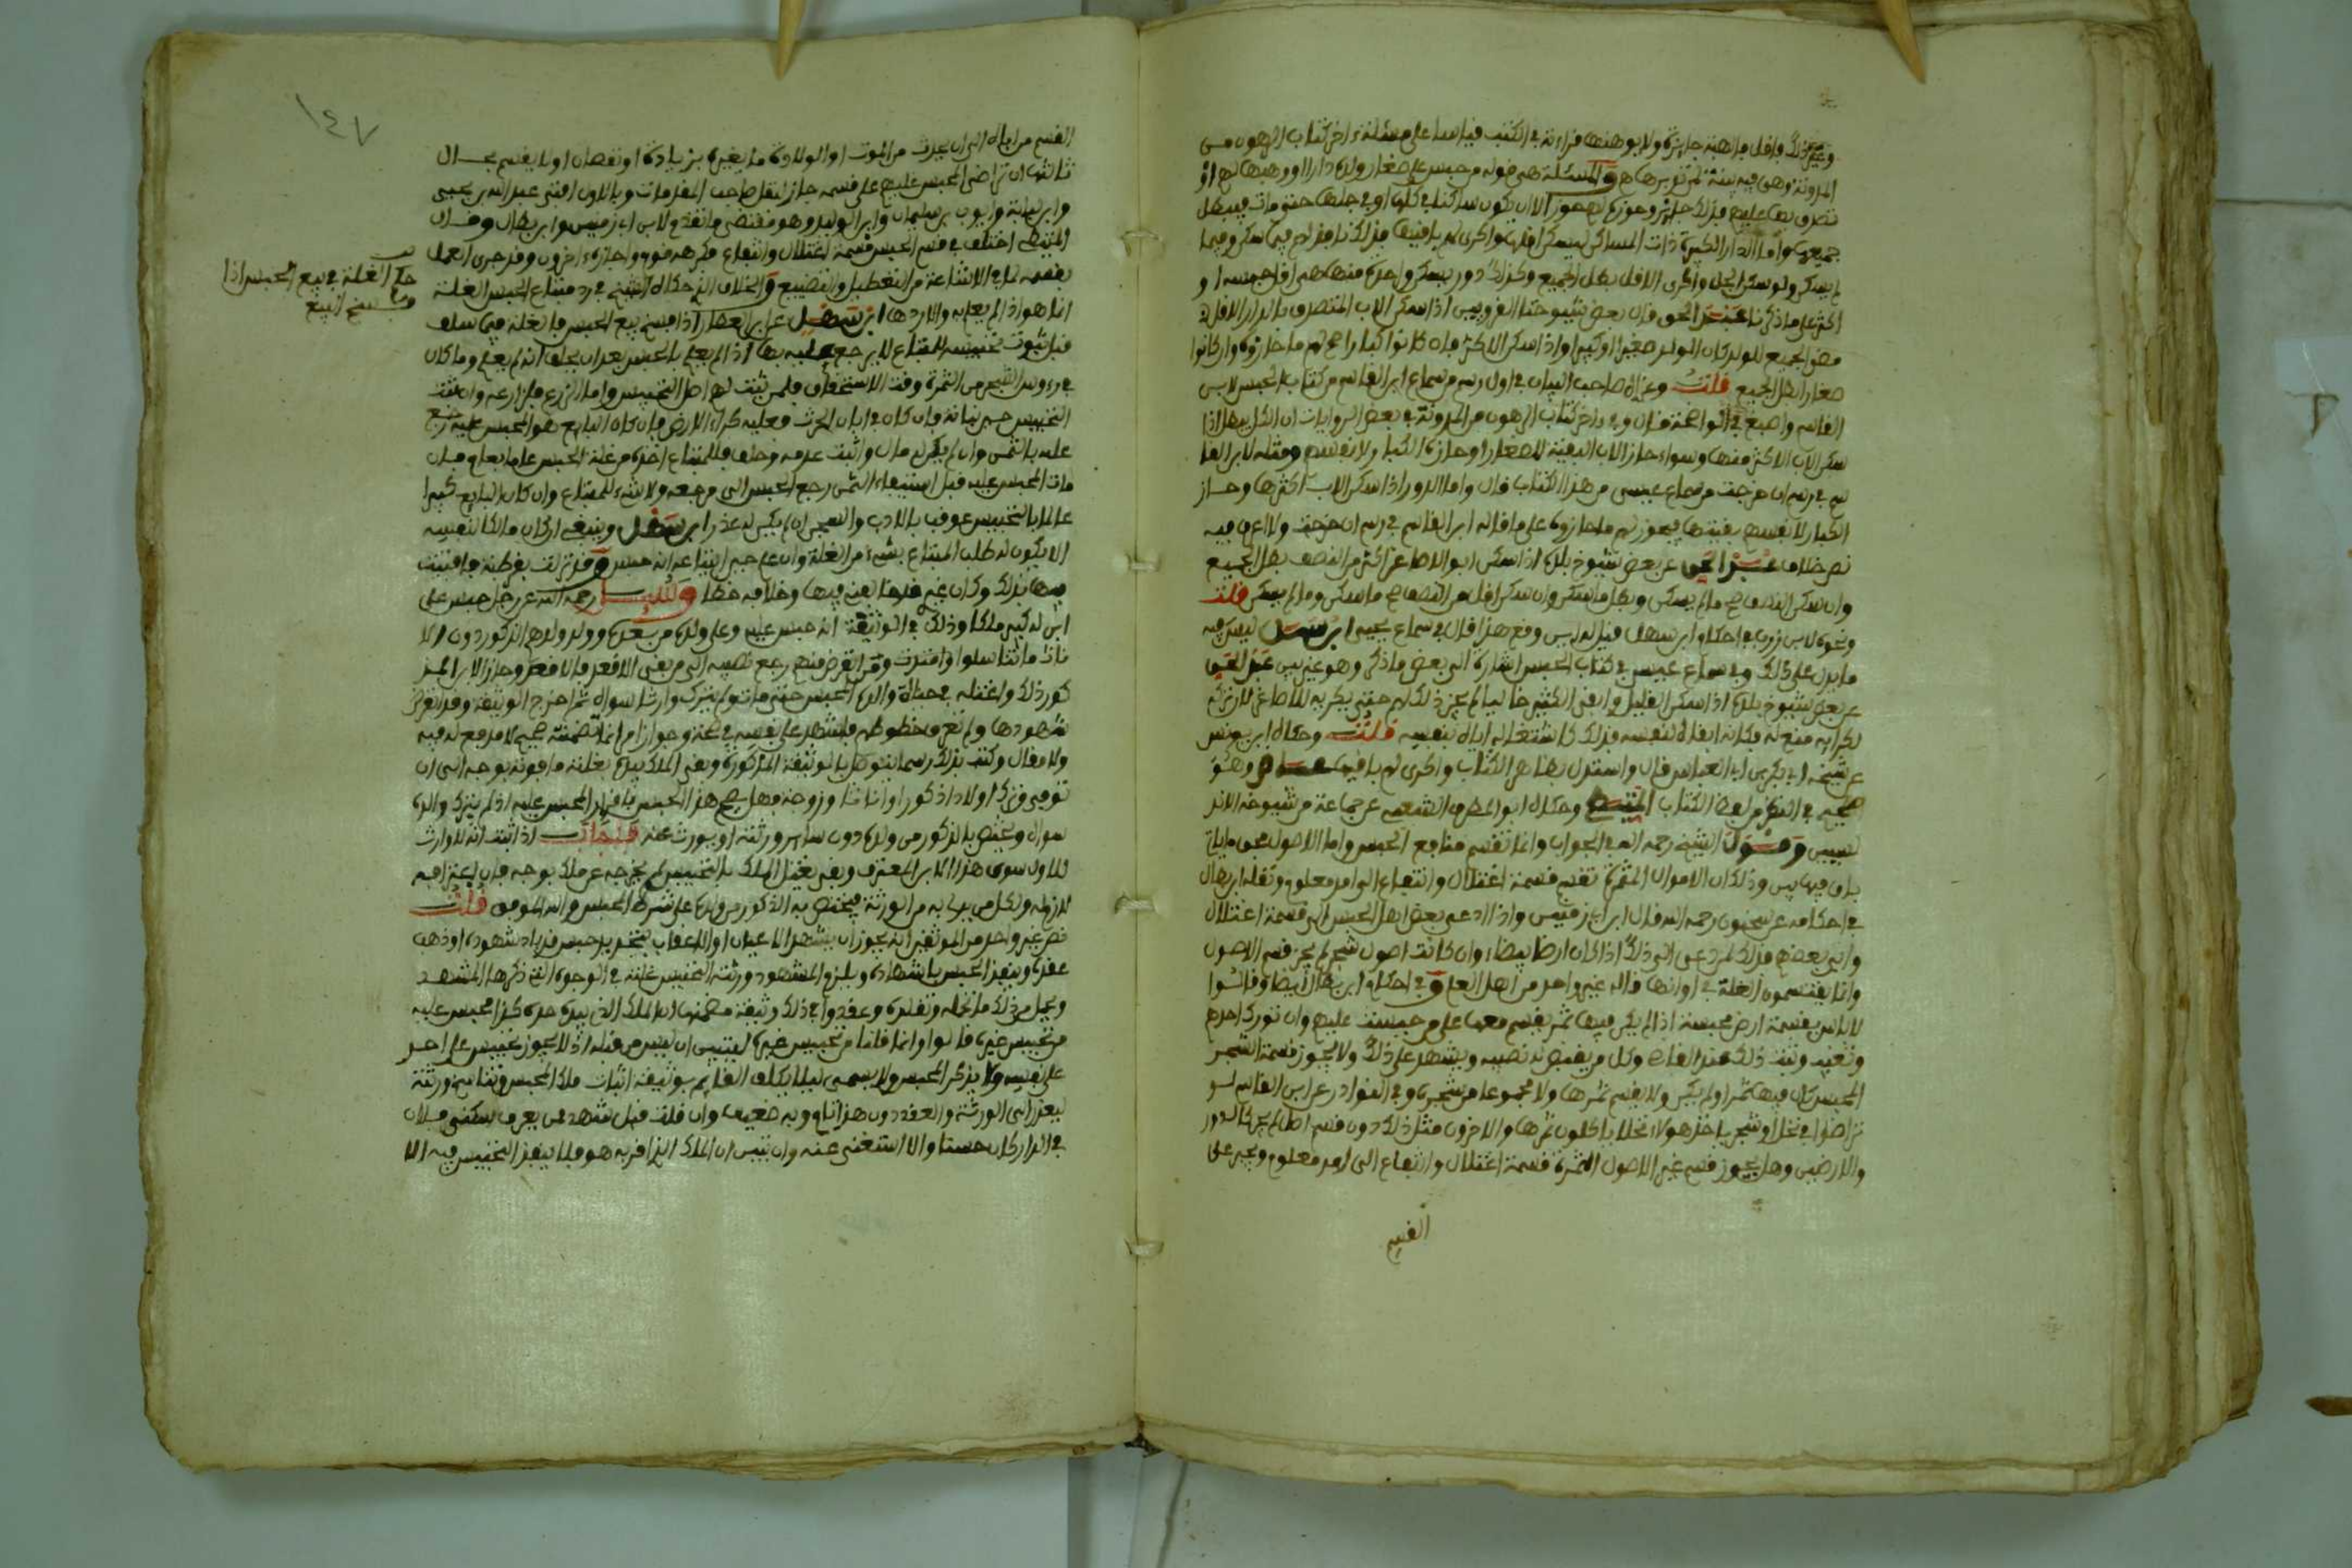 المدونة وهي فيه بينة لم تفويرها هـ والمسئلة هي قوله من حبس على صغار ولده دارا او وهبها لهم او
تصدق بها عليهم فذلك جائز وحوزه لهم حوز الا ان يكون ساكنا في كلها او في جلها حتى مات فيبطل
جميعها واما الدار الكبيرة ذات المساكن يسكن اقلها واكرى لهم باقيها فذلك نافذ لهم فيما سكن وفيما
لم يسكن ولو سكن الجل واكرى الاقل بطل الجميع وكذلك دور يسكن واحدة منها هي اقل حبسه او
اكثر على ما ذكرنا عبد الحق قال بعض شيوخنا القرويين اذا سكن الاب المتصدق بالدار الاقل
مضى الجميع للولد كان الولد صغيرا او كبيرا واذا سكن الاكثر فان كانوا كبارا صح لهم ما حازوه وان كانوا
صغارا بطل الجميع قلت وعزاه صاحب البيان في اول رسم من سماع ابن القاسم من كتاب الحبس لابن
القاسم واصبغ في الواضحة قال وفي داخر كتاب الرهون من المدونة في بعض الروايات ان الكل يبطل اذا
سكن الاب الاكثر منها وسواء حاز الاب البقية للصغار او حازه الكبار لانفسهم ومثله لابن القا
سم في رسم ان خرجت من سماع عيسى من هذا الكتاب قال واما الدور اذا سكن الاب اكثرها وحاز
الكبار لانفسهم بقيتها فيجوز لهم ما حازوه على ما قاله ابن القاسم في رسم ان خرجت ولا اعرف فيه
نص خلاف عبد الحق عن بعض شيوخ بلده اذا سكن ابو الاصاغر اكثر من النصف بطل الجميع
وان سكن النصف صح ما لم يسكن وبطل ما سكن وان سكن اقل من النصف صح ما سكن وما لم يسكن قلت
ونحوه لابن زرب في احكام ابن سهل قيل له ليس وقع هذا قال في سماع يحيى ابن سهل ليس فيه
ما يدل على ذلك وفي سماع عيسى في كتاب الحبس اشارة الى بعض ما ذكر وهو غير بين عبد الحق
عن بعض شيوخ بلده اذا سكن القليل وابقى الكثير خاليا لم يجز ذلك لهم حتى يكريه للاصاغر لان تركه
لكرائه منع له فكانه ابقاه لنفسه فذلك كاشتغاله اياه بنفسه قلت وحكاه ابن يونس
عن شيخه ابي بكر بن ابي العباس قال واستدل بظاهر الكتاب واكرى لهم باقيها وهو
صحيح في النظر من لفظ الكتاب المتيطي وحكاه ابو المطرف الشعبي عن جماعة من شيوخه الاند
لسيين وقول الشيخ رحمه الله في الجواب وانما تقسم منافع الحبس واما الاصول فهي ما ياتي
باق فيها بين وذلك ان الاموال المثمرة تقسم قسمة اغتلال وانتفاع الى امد معلوم ونقله ابن بطال
في احكامه عن سحنون رحمه الله قال ابن ابي زمنين واذا ادعى بعض اهل الحبس الى قسمة اغتلال
وابى بعضهم فذلك لمن دعى الى ذلك اذا كان ارضا بيضاء وان كانت اصول شجر لم يجز قسم الاصول
وانما يقتسمون الغلة في اوانها قاله غير واحد من اهل العلم وفي احكام ابن بطال ايضا وقالوا
لا باس بقسمة ارض محبسة اذا لم يكن فيها ثمر يقسم معها على من حبست عليهم وان تورك احدهم
وتغيب وثبت ذلك عند القاضي وكل من يقبض له نصيبه ويشهد على ذلك ولا يجوز قسمة الشجر
المحبس كان فيها ثمر او لم يكن ولا يقسم ثمرها ولا مجموعا من شجره وفي النوادر عن ابن القاسم لو
تراضوا في نخل او شجر ياخذ هولاء نخلا ياكلون ثمرها والاخرون مثل ذلك دون قسم اصل لم يجز كالدور
والارضين وهل يجوز قسم غير الاصول المثمرة قسمة اغتلال وانتفاع الى امد معلوم ويجبر على
القسم
١٤٧
القسم من اباه الى ان يحدث من الموت او الولادة ما يغيره بزيادة او نقصان او لا يقسم بحال
ثالثها ان تراضى المحبس عليهم على قسمه جاز لنقل صاحب المقدمات وبالاول افتى عبد الله بن يحيى
وابن لبابة وايوب بن سليمان وابن الوليد وهو مقتضى ما تقدم لابن ابي زمنين وابن بطال وقال
المتيطي اختلف في قسم الحبس قسمة اغتلال وانتفاع فكرهه قوم واجازه اخرون وقد جرى العمل
بقسمه لما في الاشاعة من التعطيل والتضييع والخلاف الذي حكاه الشيخ في رد مبتاع الحبس الغلة
انما هو اذا لم يعلم به والا ردها ابن سهل عن ابن العطار اذا فسخ بيع الحبس فالغلة فيما سلف
حكم الغلة في بيع الحبس اذا
فسخ البيع
قبل ثبوت تحبيسه للمبتاع لا يرجع عليه بها اذا لم يعلم بالحبس بعد ان يحلف انه لم يعلم وما كان
في رءوس الشجر من الثمرة وقت الاستحقاق فلمن ثبت لهم اصل التحبيس واما الزرع فلزارعه وان ثبت
التحبيس حين نباته فان كان في ابان الحرث فعليه كراء الارض فان كان البايع هو المحبس عليه رجع
عليه بالثمن وان لم يكن له مال واثبت عدمه وحلف فللمبتاع اخذه من غلة الحبس عاما بعام فان
مات المحبس عليه قبل استيفاء الثمن رجع الحبس الى مرجعه ولا شيء للمبتاع وان كان البايع كبيرا
عالما بالتحبيس عوقب بالادب والسجن ان لم يكن له عذر ابن سهل وينبغي ان كان مالكا لنفسه
الا يكون له طلب المبتاع بشيء من الغلة وان علم حين ابتياعه انه حبس وقد نزلت بقرطبة فافتيت
فيها بذلك وكان غيري فيها وخلافه خطا وسئل رحمه الله عن رجل حبس على
ابن له كبير ملكا وذلك في الوثيقة انه حبس عليه وعلى ولده من بعده وولد ولدهم الذكور دون الا
ناث ما تناسلوا وامتدت وقد انقرض منهم رجع نصيبه الى من بقى الاقعد فالاقعد وحاز الابن المذ
كور ذلك واغتله في حياة والده المحبس حتى مات ولم يترك وارثا سواه ثم اخرج الوثيقة وقد انقرض
شهودها ولم تعرف خطوطهم فاشهد على نفسه في صحة وجواز امر انما تضمنته صحيح لا مدفع له فيه
ولا مقال وكتب بذلك رسما يتوصل بالوثيقة المذكورة وبقي الملك بيده بغلته ما فوته بوجه الى ان
توفي وترك اولادا ذكورا واناثا وزوجة فهل يصح هذا الحبس باقرار المحبس عليه اذ لم يترك والده
سواه ويختص بالذكور من ولده دون ساير ورثته او يورث عنه فاجاب اذا ثبت انه لا وارث
للاول سوى هذا الابن المعترف وبقي بعين الملك بالتحبيس لم يخرجه عن ملكه بوجه فان اعترافه
لازم له ولكل من يدلي به من الورثة فيختص به الذكور من ولده على شرط الحبس والله الموفق قلت
نص غير واحد من الموثقين انه يجوز ان يشهد الاعيان او الاعقاب بتجديد حبس قد باد شهوده او ذهب
عقده وينفذ الحبس باشهاده ويلزم المشهود ورثته التحبيس غلته في الوجوه التي ذكرها المشهد
ويحمل من ذلك ما تحمله وتقلده وعقدوا في ذلك وثيقة مضمنها ان الملك الذي بيده حده كذا محبس عليه
من تحبيس غيره قالوا وانما قلنا من تحبيس غيره ليتبين ان ليس من قبله اذ لا يجوز تحبيس على احد
على نفسه ولا يذكر المحبس ولا يسمى ليلا يكلف القايم بوثيقة اثبات ملك المحبس وتناسخ ورثته
ليعذر الى الورثة والعقد دون هذا تام وبه ضعيف وان قلت قبل شهد من يعرف سكنى فلان
في الدار كان حسنا والا استغنى عنه وان تبين ان الملك الذي اقر به هو فلا ينفذ التحبيس فيه الا